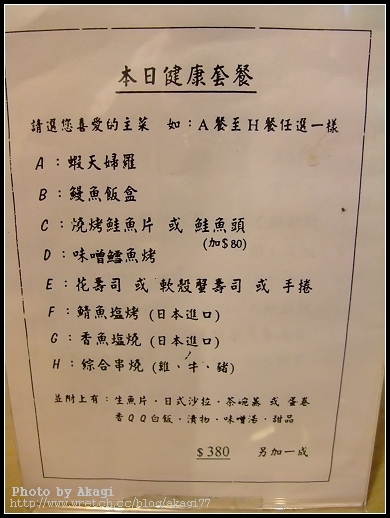 本日健康套餐
請選您喜愛的主菜 如:A餐至H餐任選一樣
A:蝦天婦羅
B:鰻魚飯盒
C:燒烤鮭魚片 或 鮭魚頭
(加$80)
D:味噌鱈魚烤
E:花壽司 或 軟殼蟹壽司 或 手捲
F:鯖魚塩烤(日本進口)
G:香魚塩燒(日本進口)
H:綜合串燒(雞、牛、豬)
並附上有:生魚片·日式沙拉·茶碗蒸 或 蛋卷
香QQ白飯·漬物·味噌湯·甜品
$380 另加一成
Photo by Akagi
http://www.wretch.cc/blog/akagi77